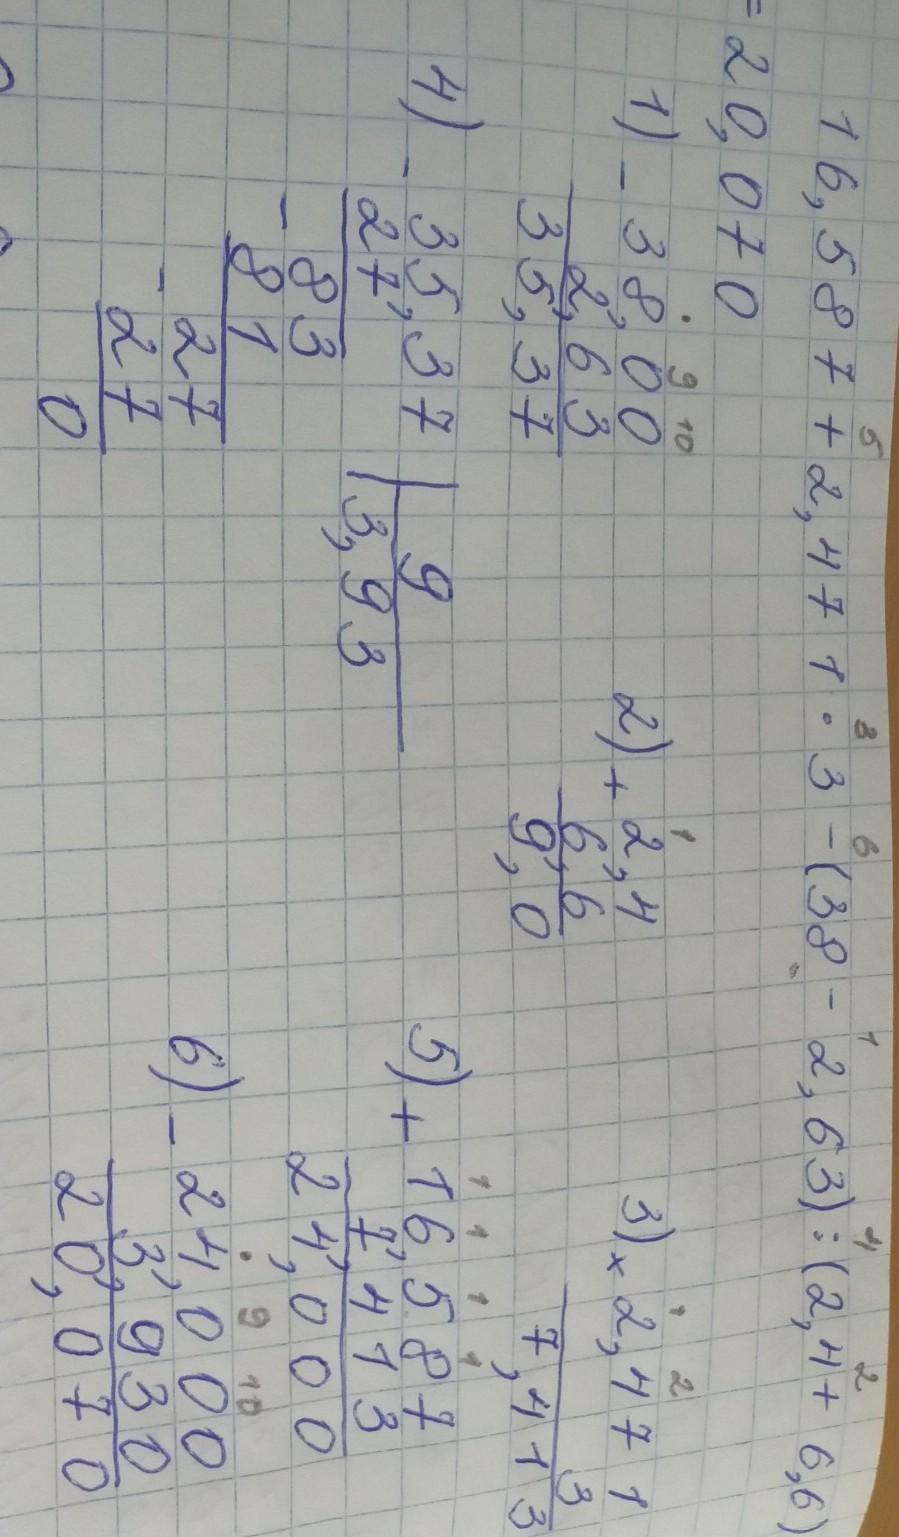 16,587 + 2,471 · 3 - (38 - 2,63) : (2,4 + 6,6)
= 20,070
1) - 38,00
2,63
35,37
2) + 2,4
6,6
9,0
3) × 2,471
3
7,413
4) - 35,37 | 9
27 | 3,93
- 83
81
- 27
27
0
5) + 16,587
7,413
24,000
6) - 24,000
3,930
20,070